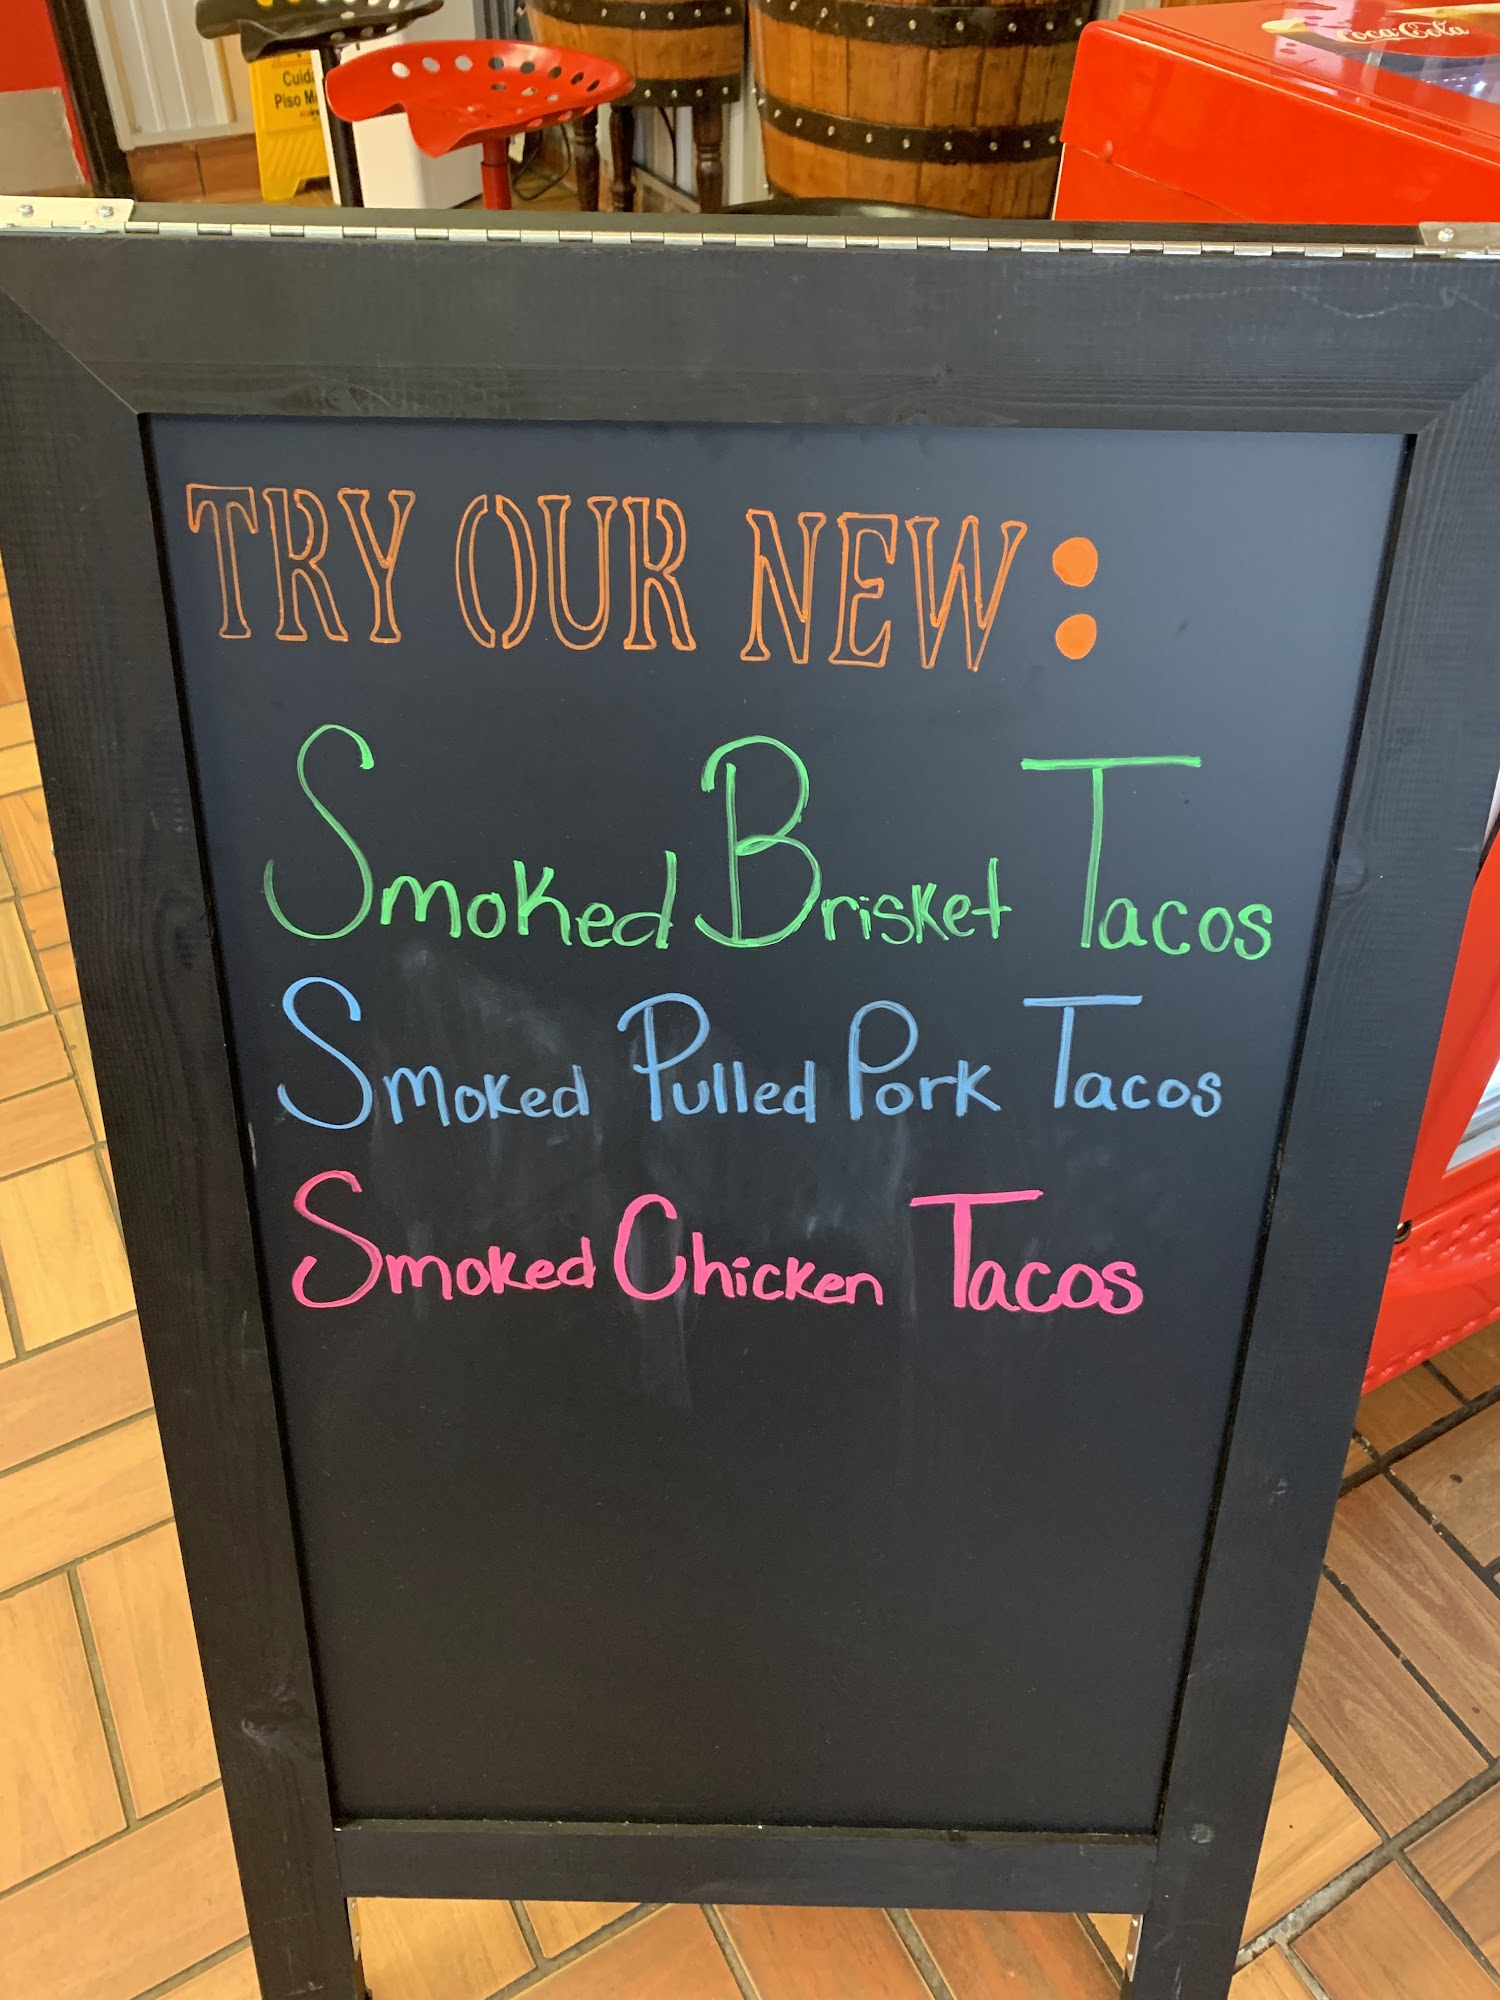 Coca-Cola
Piso
TRY OUR NEW:
Smoked Brisket Tacos
Smoked Pulled Pork Tacos
Smoked Chicken Tacos